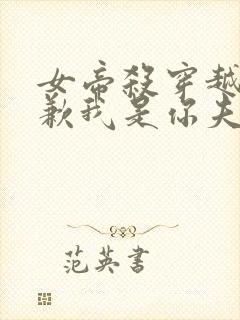 女帝殺穿越
歉我是你夫
范英書